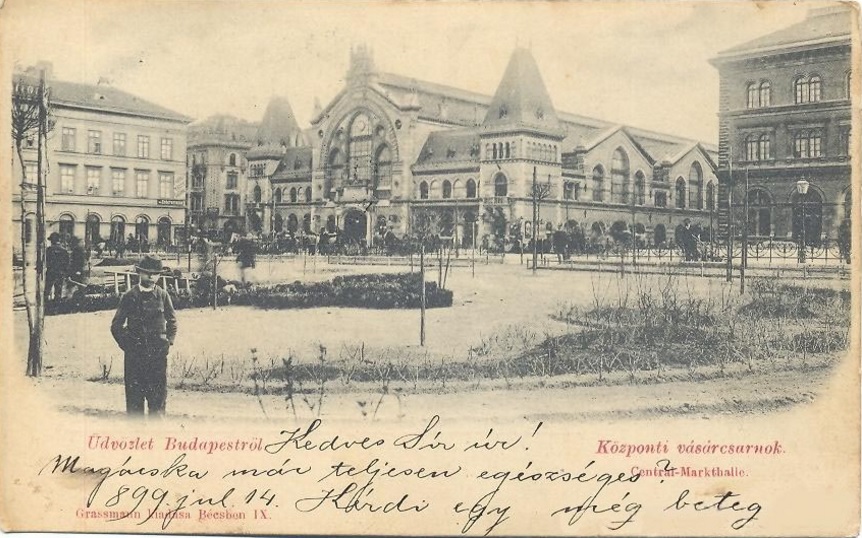 Üdvözlet Budapestről
Kedves Sör úr!
Központi vásárcsarnok.
Central-Markthalle.
Magácska már teljesen egészséges?
899 jul 14. Kárdi egy még beteg
Grassmann kiadása Bécsben IX.